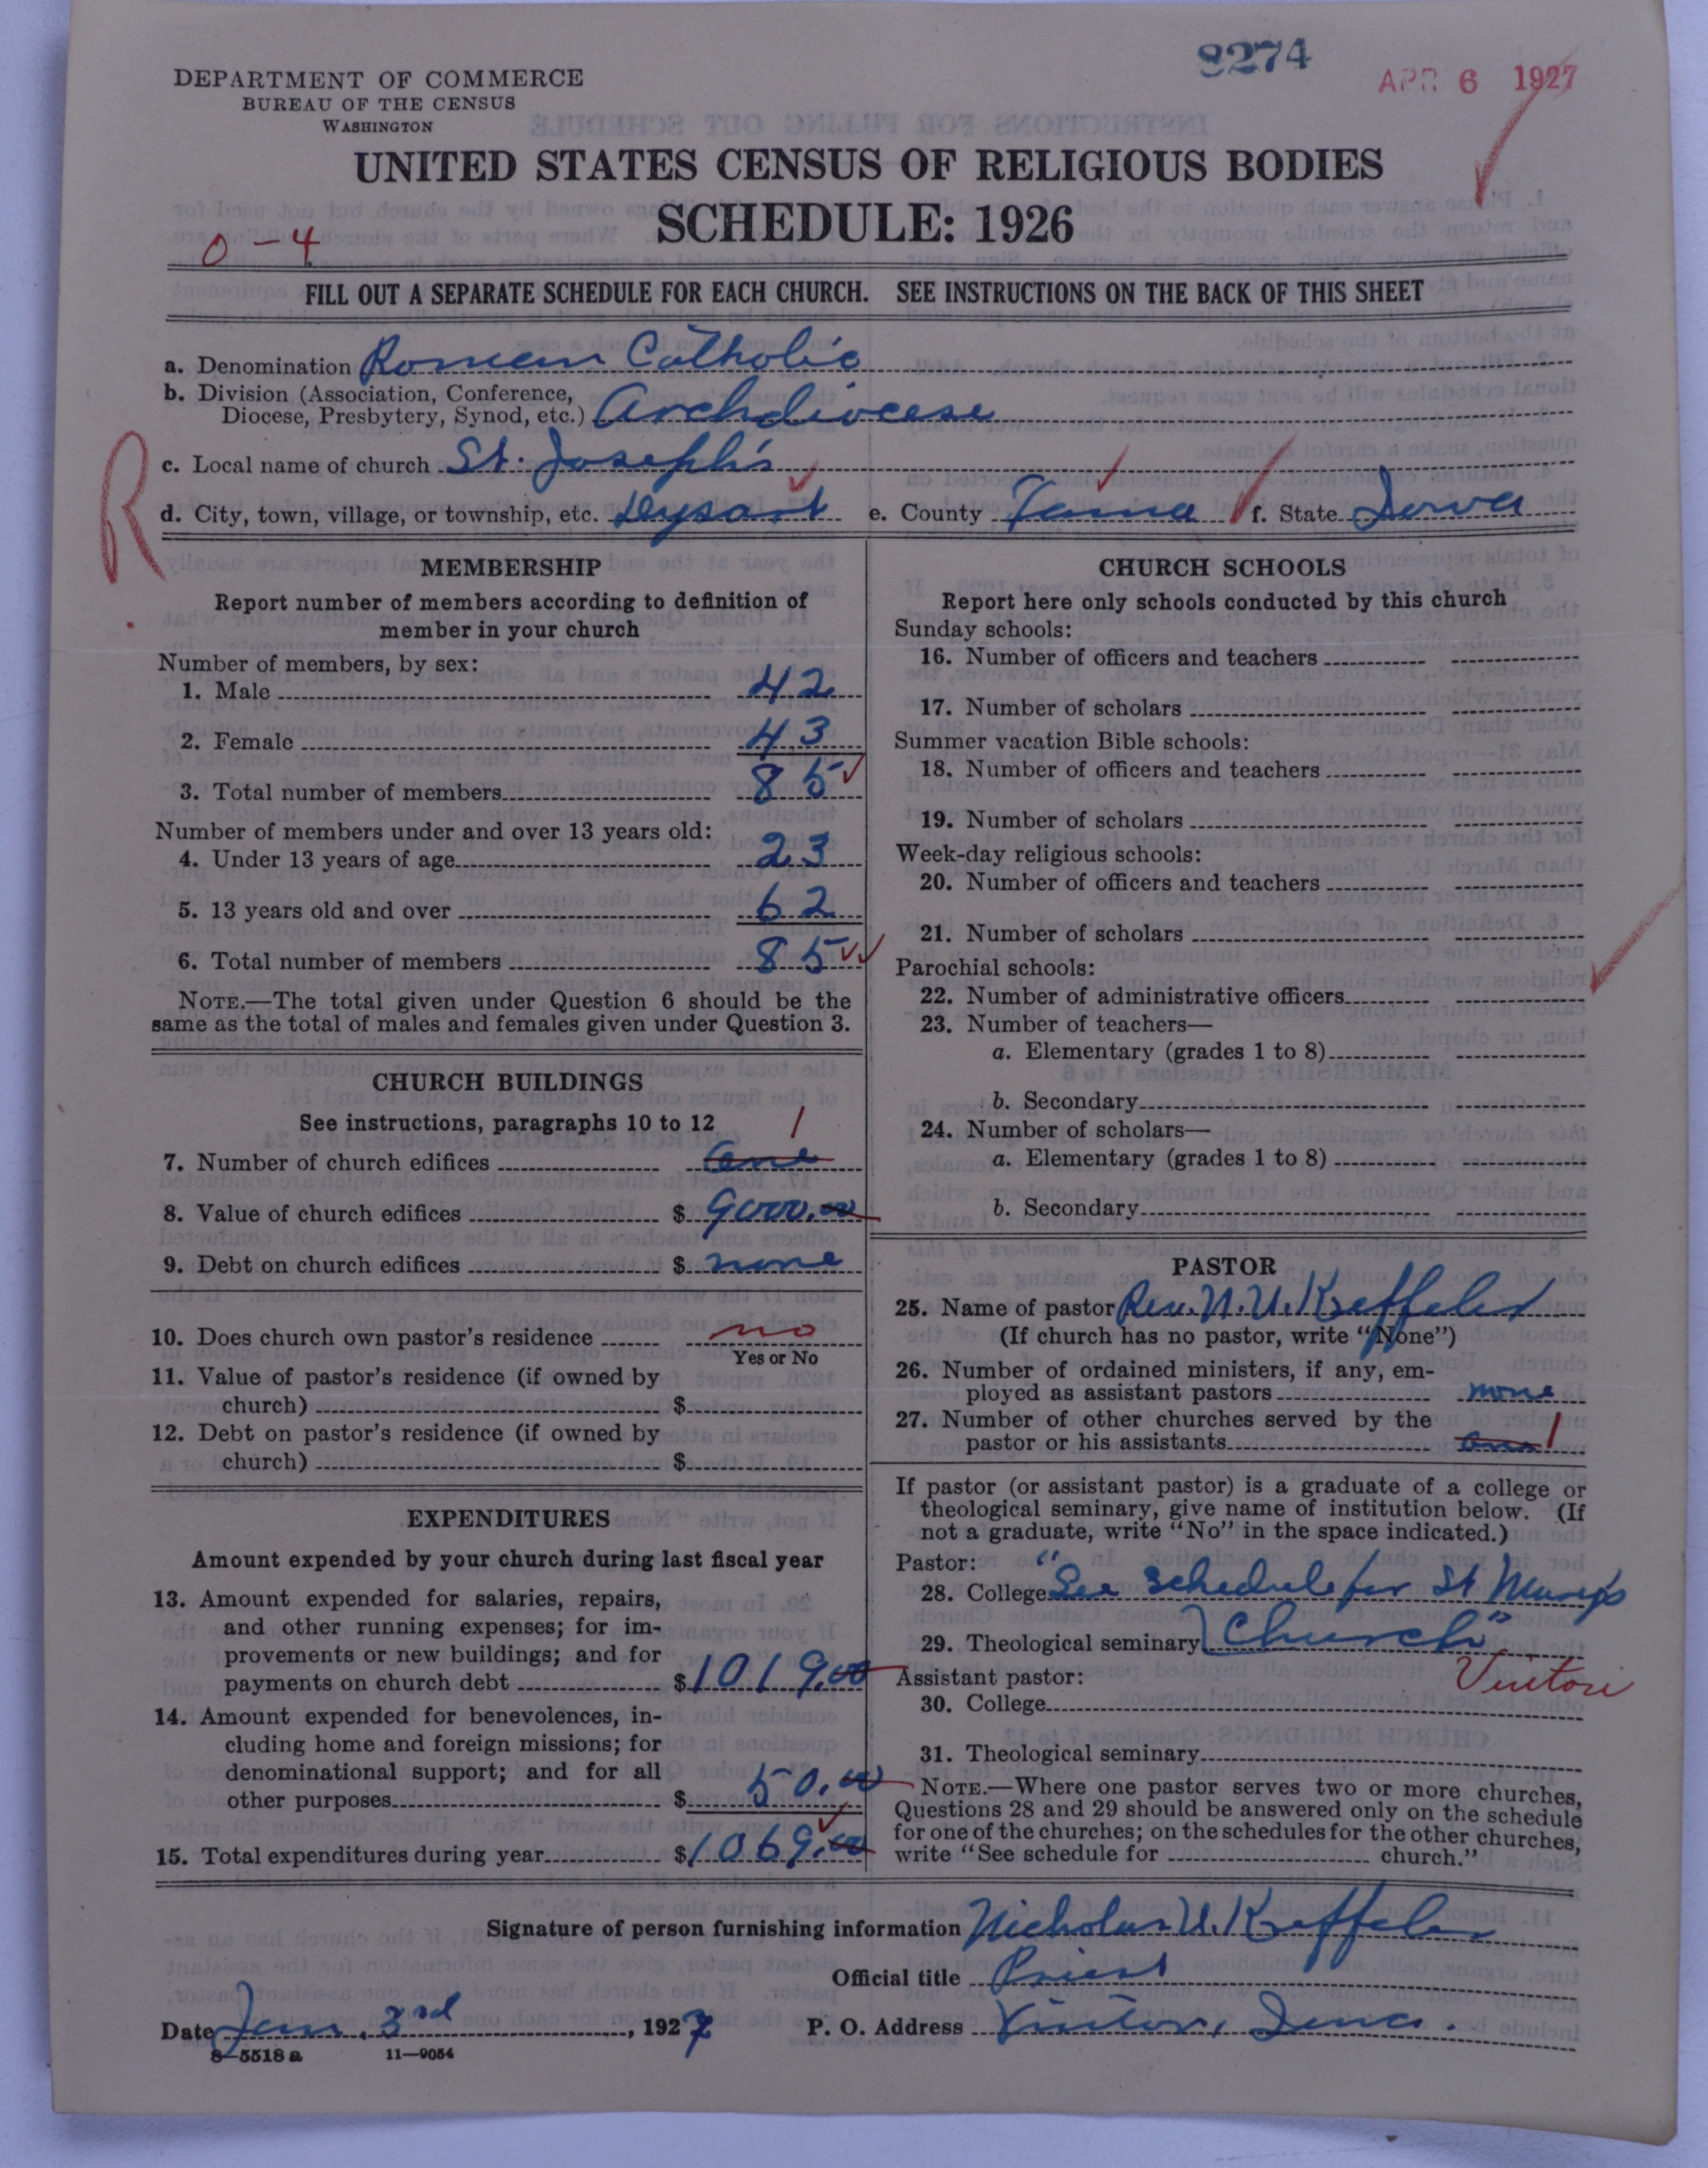 8274
APR 6 1927
DEPARTMENT OF COMMERCE
BUREAU OF THE CENSUS
WASHINGTON
UNITED STATES CENSUS OF RELIGIOUS BODIES
SCHEDULE: 1926
0-4
FILL OUT A SEPARATE SCHEDULE FOR EACH CHURCH. SEE INSTRUCTIONS ON THE BACK OF THIS SHEET
a. Denomination Roman Catholic
b. Division (Association, Conference,
Diocese, Presbytery, Synod, etc.) Archdiocese
R
c. Local name of church St. Joseph's
d. City, town, village, or township, etc. Dysart e. County Tama f. State Iowa
MEMBERSHIP
Report number of members according to definition of
member in your church
Number of members, by sex:
1. Male 42
2. Female 43
3. Total number of members 85
Number of members under and over 13 years old:
4. Under 13 years of age 23
5. 13 years old and over 62
6. Total number of members 85
NOTE.—The total given under Question 6 should be the
same as the total of males and females given under Question 3.
CHURCH BUILDINGS
See instructions, paragraphs 10 to 12
7. Number of church edifices one 1
8. Value of church edifices $ 9000.00
9. Debt on church edifices $ none
10. Does church own pastor's residence no
Yes or No
11. Value of pastor's residence (if owned by
church) $
12. Debt on pastor's residence (if owned by
church) $
EXPENDITURES
Amount expended by your church during last fiscal year
13. Amount expended for salaries, repairs,
and other running expenses; for im-
provements or new buildings; and for
payments on church debt $ 1019.00
14. Amount expended for benevolences, in-
cluding home and foreign missions; for
denominational support; and for all
other purposes $ 50.00
15. Total expenditures during year $ 1069.00
CHURCH SCHOOLS
Report here only schools conducted by this church
Sunday schools:
16. Number of officers and teachers
17. Number of scholars
Summer vacation Bible schools:
18. Number of officers and teachers
19. Number of scholars
Week-day religious schools:
20. Number of officers and teachers
21. Number of scholars
Parochial schools:
22. Number of administrative officers
23. Number of teachers—
a. Elementary (grades 1 to 8)
b. Secondary
24. Number of scholars—
a. Elementary (grades 1 to 8)
b. Secondary
PASTOR
25. Name of pastor Rev. N. U. Kreffeler
(If church has no pastor, write "None")
26. Number of ordained ministers, if any, em-
ployed as assistant pastors none
27. Number of other churches served by the
pastor or his assistants one 1
If pastor (or assistant pastor) is a graduate of a college or
theological seminary, give name of institution below. (If
not a graduate, write "No" in the space indicated.)
Pastor:
28. College "See schedule for St Mary's
29. Theological seminary Church"
Assistant pastor: Vinton
30. College
31. Theological seminary
NOTE.—Where one pastor serves two or more churches,
Questions 28 and 29 should be answered only on the schedule
for one of the churches; on the schedules for the other churches,
write "See schedule for church."
Signature of person furnishing information Nicholas U. Kreffeler
Official title Priest
Date Jan. 3rd, 1927 P. O. Address Vinton, Iowa.
8—5518 a 11—9054